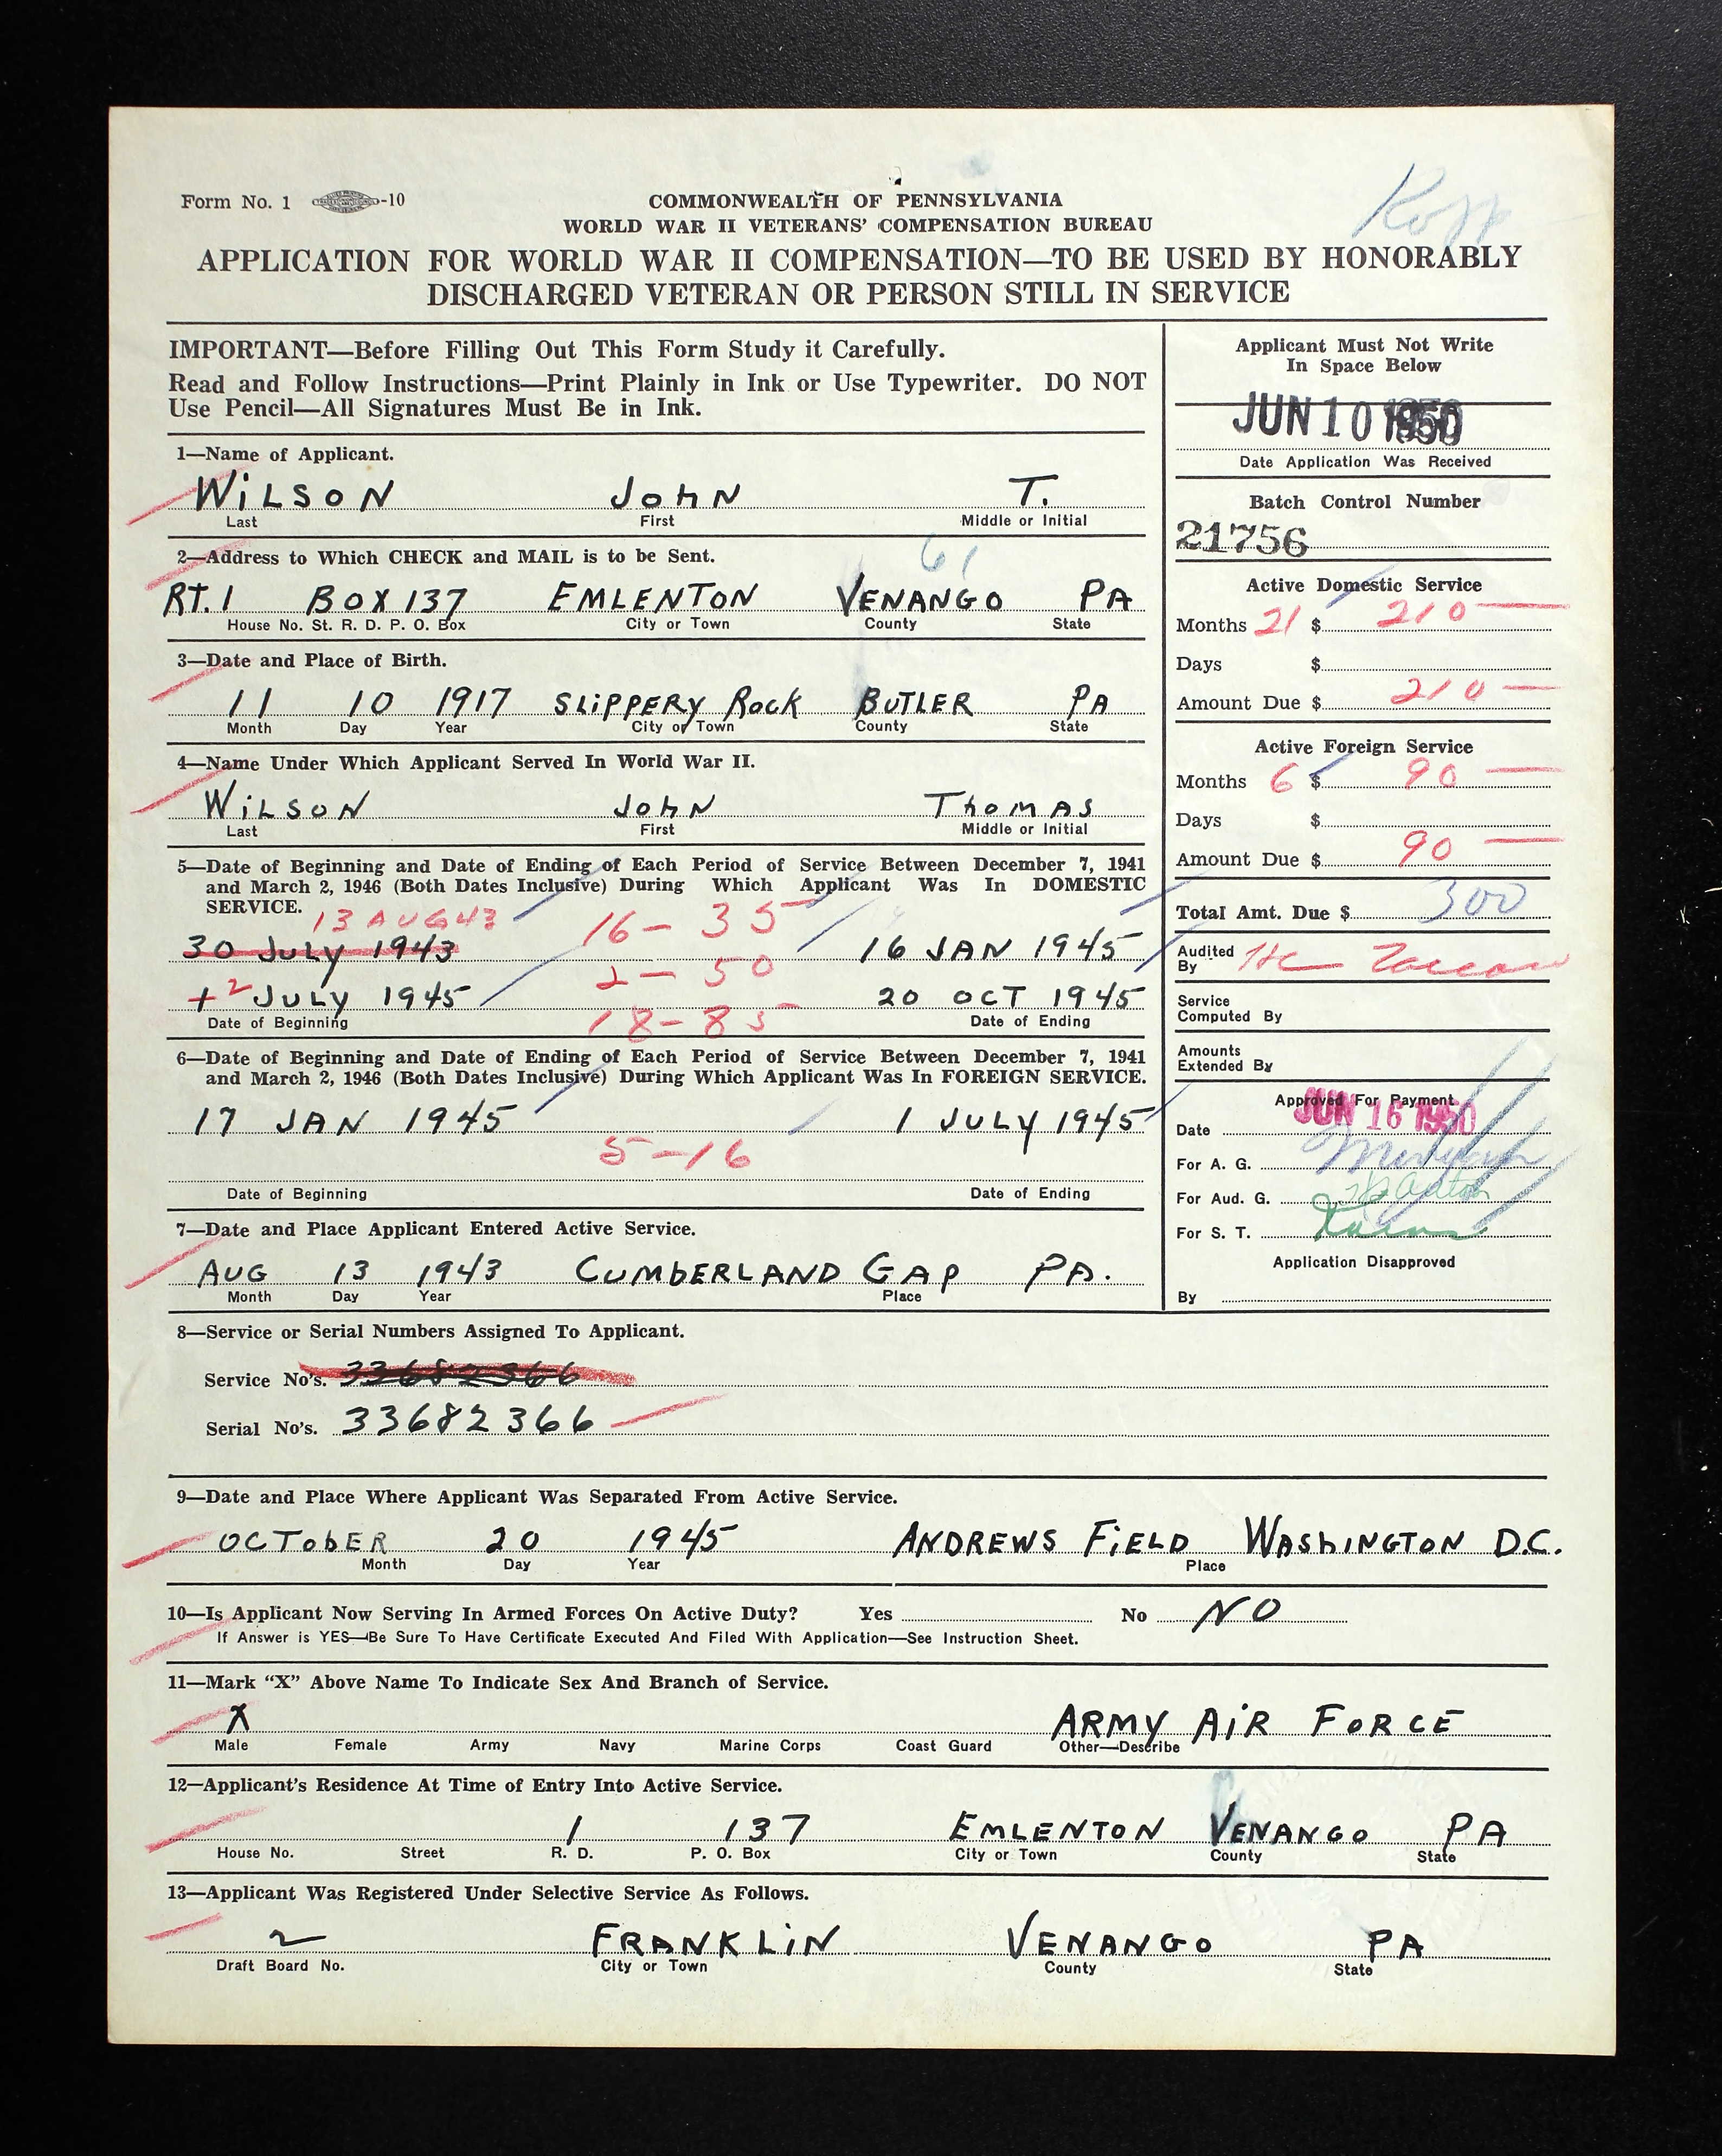 Form No. 1 -10
COMMONWEALTH OF PENNSYLVANIA
WORLD WAR II VETERANS' COMPENSATION BUREAU
APPLICATION FOR WORLD WAR II COMPENSATION—TO BE USED BY HONORABLY
DISCHARGED VETERAN OR PERSON STILL IN SERVICE
IMPORTANT—Before Filling Out This Form Study it Carefully.
Read and Follow Instructions—Print Plainly in Ink or Use Typewriter. DO NOT
Use Pencil—All Signatures Must Be in Ink.
1—Name of Applicant.
WiLSON JOHN T.
Last First Middle or Initial
2—Address to Which CHECK and MAIL is to be Sent.
61
RT. 1 BOX 137 EMLENTON VENANGO PA
House No. St. R. D. P. O. Box City or Town County State
3—Date and Place of Birth.
11 10 1917 SLiPPERY ROCK BUTLER PA
Month Day Year City or Town County State
4—Name Under Which Applicant Served In World War II.
WiLSON JOHN THOMAS
Last First Middle or Initial
5—Date of Beginning and Date of Ending of Each Period of Service Between December 7, 1941
and March 2, 1946 (Both Dates Inclusive) During Which Applicant Was In DOMESTIC
SERVICE.
13 AUG 43 16 - 35
30 JULY 1943 16 JAN 1945
2 - 50
2 JULY 1945 20 OCT 1945
Date of Beginning 18 - 85 Date of Ending
6—Date of Beginning and Date of Ending of Each Period of Service Between December 7, 1941
and March 2, 1946 (Both Dates Inclusive) During Which Applicant Was In FOREIGN SERVICE.
17 JAN 1945 1 JULY 1945
5 - 16
Date of Beginning Date of Ending
7—Date and Place Applicant Entered Active Service.
AUG 13 1943 CUMBERLAND GAP PA.
Month Day Year Place
Applicant Must Not Write
In Space Below
JUN 10 1950
Date Application Was Received
Batch Control Number
21756
Active Domestic Service
Months 21 $ 210 —
Days $
Amount Due $ 210 —
Active Foreign Service
Months 6 $ 90 —
Days $
Amount Due $ 90 —
Total Amt. Due $ 300
Audited
By
Service
Computed By
Amounts
Extended By
Approved For Payment
JUN 16 1950
Date
For A. G.
For Aud. G.
For S. T.
Application Disapproved
By
8—Service or Serial Numbers Assigned To Applicant.
Service No's. 33682366
Serial No's. 33682366
9—Date and Place Where Applicant Was Separated From Active Service.
OCTObER 20 1945 ANDREWS FiELD WASHINGTON D.C.
Month Day Year Place
10—Is Applicant Now Serving In Armed Forces On Active Duty? Yes No NO
If Answer is YES—Be Sure To Have Certificate Executed And Filed With Application—See Instruction Sheet.
11—Mark "X" Above Name To Indicate Sex And Branch of Service.
X ARMY AiR FORCE
Male Female Army Navy Marine Corps Coast Guard Other—Describe
12—Applicant's Residence At Time of Entry Into Active Service.
1 137 EMLENTON VENANGO PA
House No. Street R. D. P. O. Box City or Town County State
13—Applicant Was Registered Under Selective Service As Follows.
2 FRANKLiN VENANGO PA
Draft Board No. City or Town County State